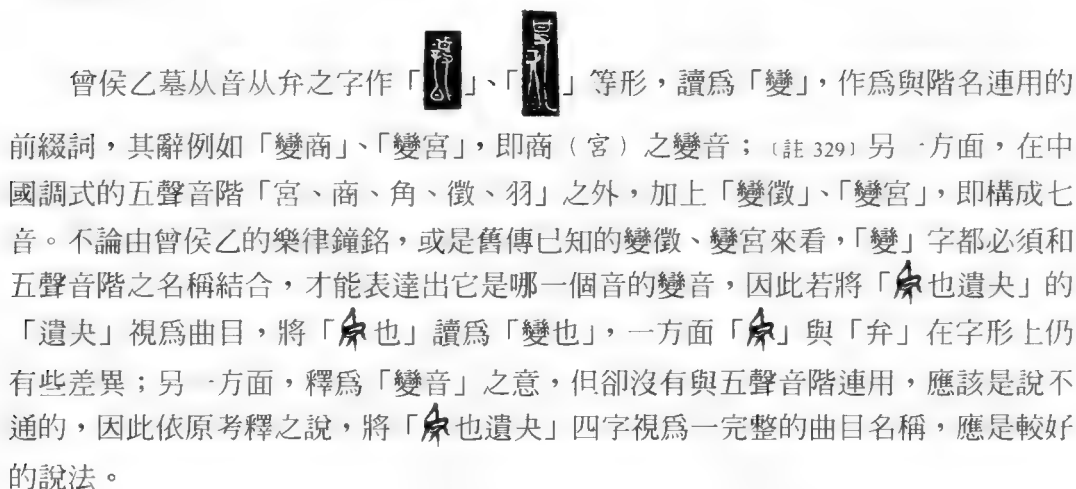 曾侯乙墓从音从弁之字作「」、「」等形，讀爲「變」，作爲與階名連用的
前綴詞，其辭例如「變商」、「變宮」，即商（宮）之變音；〔註 329〕另一方面，在中
國調式的五聲音階「宮、商、角、徵、羽」之外，加上「變徵」、「變宮」，即構成七
音。不論由曾侯乙的樂律鐘銘，或是舊傳已知的變徵、變宮來看，「變」字都必須和
五聲音階之名稱結合，才能表達出它是哪一個音的變音，因此若將「也遺夬」的
「遺夬」視爲曲目，將「也」讀爲「變也」，一方面「」與「弁」在字形上仍
有些差異；另一方面，釋爲「變音」之意，但卻沒有與五聲音階連用，應該是說不
通的，因此依原考釋之說，將「也遺夬」四字視爲一完整的曲目名稱，應是較好
的說法。